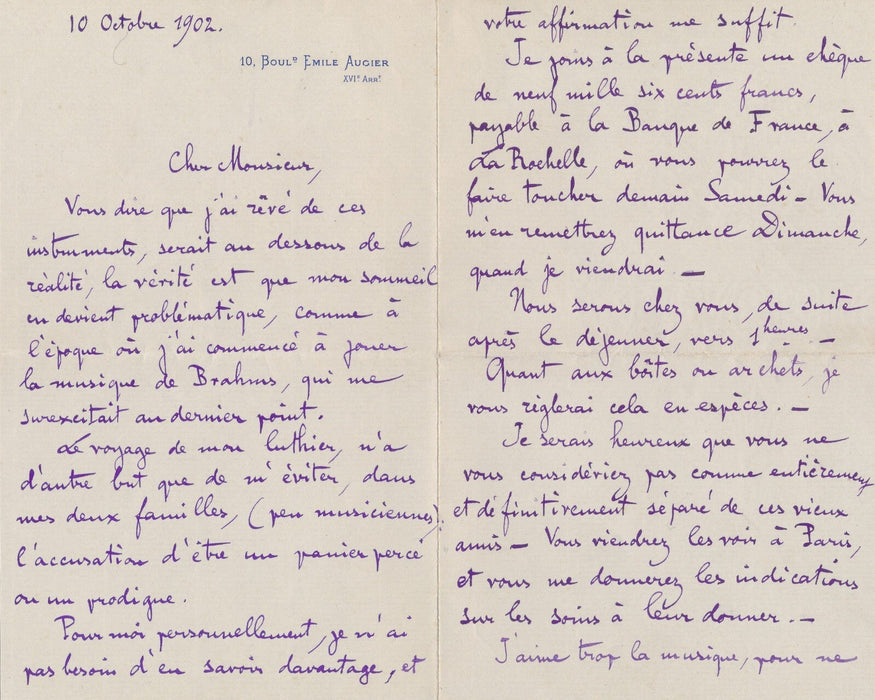 10 Octobre 1902.
10, BOUL.D EMILE AUGIER
XVIE ARRT
Cher Monsieur,
Vous dire que j'ai rêvé de ces
instruments, serait au dessous de la
réalité, la vérité est que mon sommeil
en devient problématique, comme à
l'époque où j'ai commencé à jouer
la musique de Brahms, qui me
surexcitait au dernier point.
Le voyage de mon luthier, n'a
d'autre but que de m'éviter, dans
mes deux familles, (peu musiciennes)
l'accusation d'être un panier percé
ou un prodigue.
Pour moi personnellement, je n'ai
pas besoin d'en savoir davantage, et
votre affirmation me suffit.
Je joins à la présente un chèque
de neuf mille six cents francs,
payable à la Banque de France, à
La Rochelle, où vous pourrez le
faire toucher demain Samedi — Vous
m'en remettrez quittance Dimanche,
quand je viendrai. —
Nous serons chez vous, de suite
après le déjeuner, vers 1 heures. —
Quant aux bôites ou archets, je
vous règlerai cela en espèces. —
Je serais heureux que vous ne
vous considériez pas comme entièrement
et définitivement séparé de ces vieux
amis — Vous viendrez les voir à Paris,
et vous me donnerez les indications
sur les soins à leur donner. —
J'aime trop la musique, pour ne